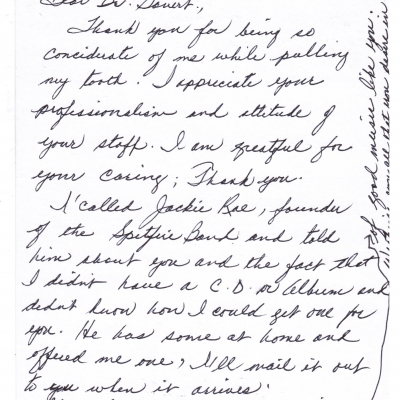 Dear Dr. Govert.,
Thank you for being so
conciderate of me while pulling
my tooth. I appreciate your
professionalism and attitude of
your staff. I am greatful for
your caring; Thank you.
I called Jackie Rae, founder
of the Spitfire Band and told
him about you and the fact that
I didn't have a C.D. or Album and
didn't know how I could get one for
you. He has some at home and
offered me one, I'll mail it out
to you when it arrives.
good music like you.
all that